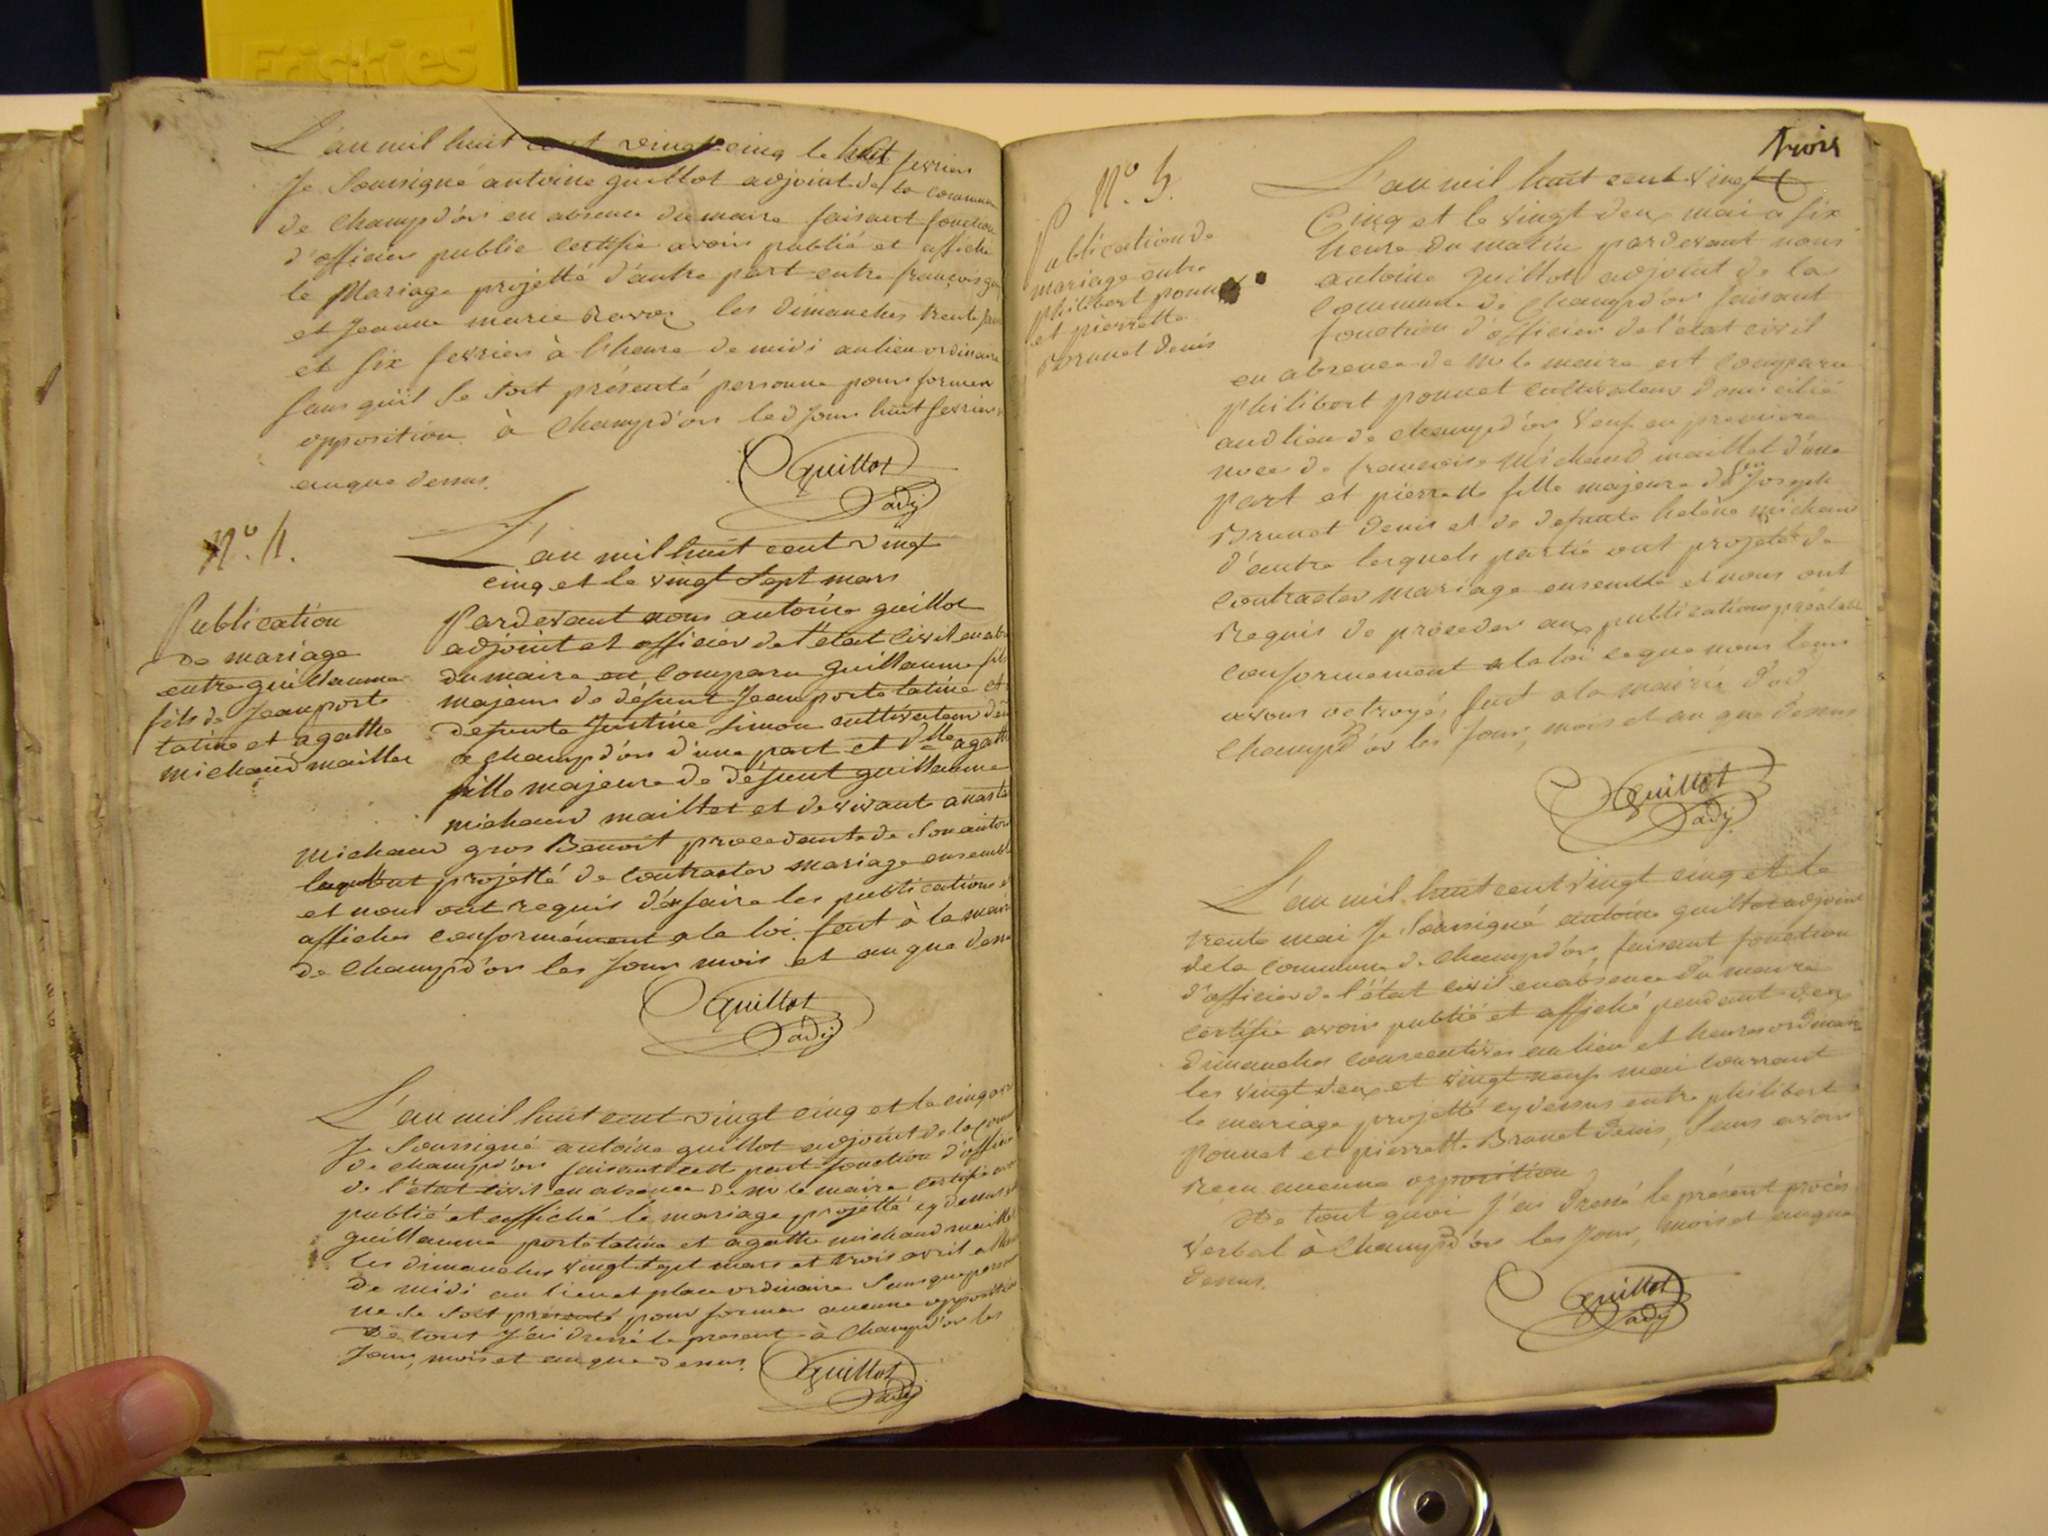 Friskies
L'an mil huit cent vingt cinq le huit fevrier
Je Soussigné antoine guillot adjoint de la commune
de Champd'or en absence du maire faisant fonction
d'officier public certifie avoir publié et affiché
le Mariage projetté d'autre part entre françois
et Jeanne marie Ravoz les dimanches trente
et six fevrier à l'heure de midi au lieu ordinaire
sans qu'il se soit présenté personne pour former
opposition à Champd'or led Jour huit fevrier
an que dessus.
Guillot
adj
N.o 4.
Publication
de mariage
entre guillaume
fils de Jean porte
latine et agathe
michaud maillet
L'an mil huit cent vingt
cinq et le vingt Sept mars
Pardevant nous antoine guillot
adjoint et officier de l'état civil en abs
du maire est Comparu guillaume fils
majeur de défunt Jean porte latine et
defunte Justine Simon cultivateur dem
a Champd'or d'une part et dlle agathe
fille majeure de défunt guillaume
michaud maillet et de vivante
michaud gros Benoit procedante de Son autor
ont projetté de contracter mariage ensemble
et nous ont requis d'en faire les publications
affiches conformément a la loi. fait à la mair
de Champd'or les Jour mois et an que dess
Guillot
adj
L'an mil huit cent vingt cinq et le cinq avr
Je Soussigné antoine guillot adjoint de la Comm
de champd'or faisant cette part fonction d'officier
de l'état civil en absence de mr le maire Certifie avoir
publié et affiché le mariage projetté cy dessus
guillaume porte latine et agathe michaud maillet
les dimanches vingt sept mars et trois avril
de midi au lieu et place ordinaire Sans que person
ne se soit présenté pour former aucune opposition
De tout J'ai dressé le present à Champd'or les
Jour, mois et an que dessus.
Guillot
adj
trois
N.o 5.
Publication de
mariage entre
philibert ponnet
et pierrette
Brunet denis
L'an mil huit cent vingt
Cinq et le vingt deux mai a six
heure du matin pardevant nous
antoine guillot adjoint de la
Commune de Champd'or faisant
fonction d'officier de l'état civil
en absence de mr le maire est Comparu
philibert ponnet cultivateur domicilié
aud lieu de champd'or veuf en premiere
noces de francoise michaud maillet d'une
part et pierrette fille majeure de feu Joseph
Brunet denis et de defunte helène michaud
d'autre lesquels partie ont projetté de
contracter mariage ensemble et nous ont
requis de proceder aux publications préalable
conformement a la loi ce que nous leur
avons octroyé fait a la mairie dud
Champd'or les Jour, mois et an que dessus
Guillot
adj
L'an mil huit cent vingt cinq et le
trente mai Je Soussigné antoine guillot adjoint
de la commune de Champd'or, faisant fonction
d'officier de l'état civil en absence du maire
certifie avoir publié et affiché pendant deux
dimanches consecutives au lieu et heures ordinaire
les vingt deux et vingt neuf mai courrant
le mariage projetté cy dessus entre philibert
Ponnet et pierrette Brunet denis, Sans avoir
recu aucune opposition
De tout quoi J'ai dressé le présent procès
verbal à Champd'or les Jour, mois et an que
dessus.
Guillot
adj